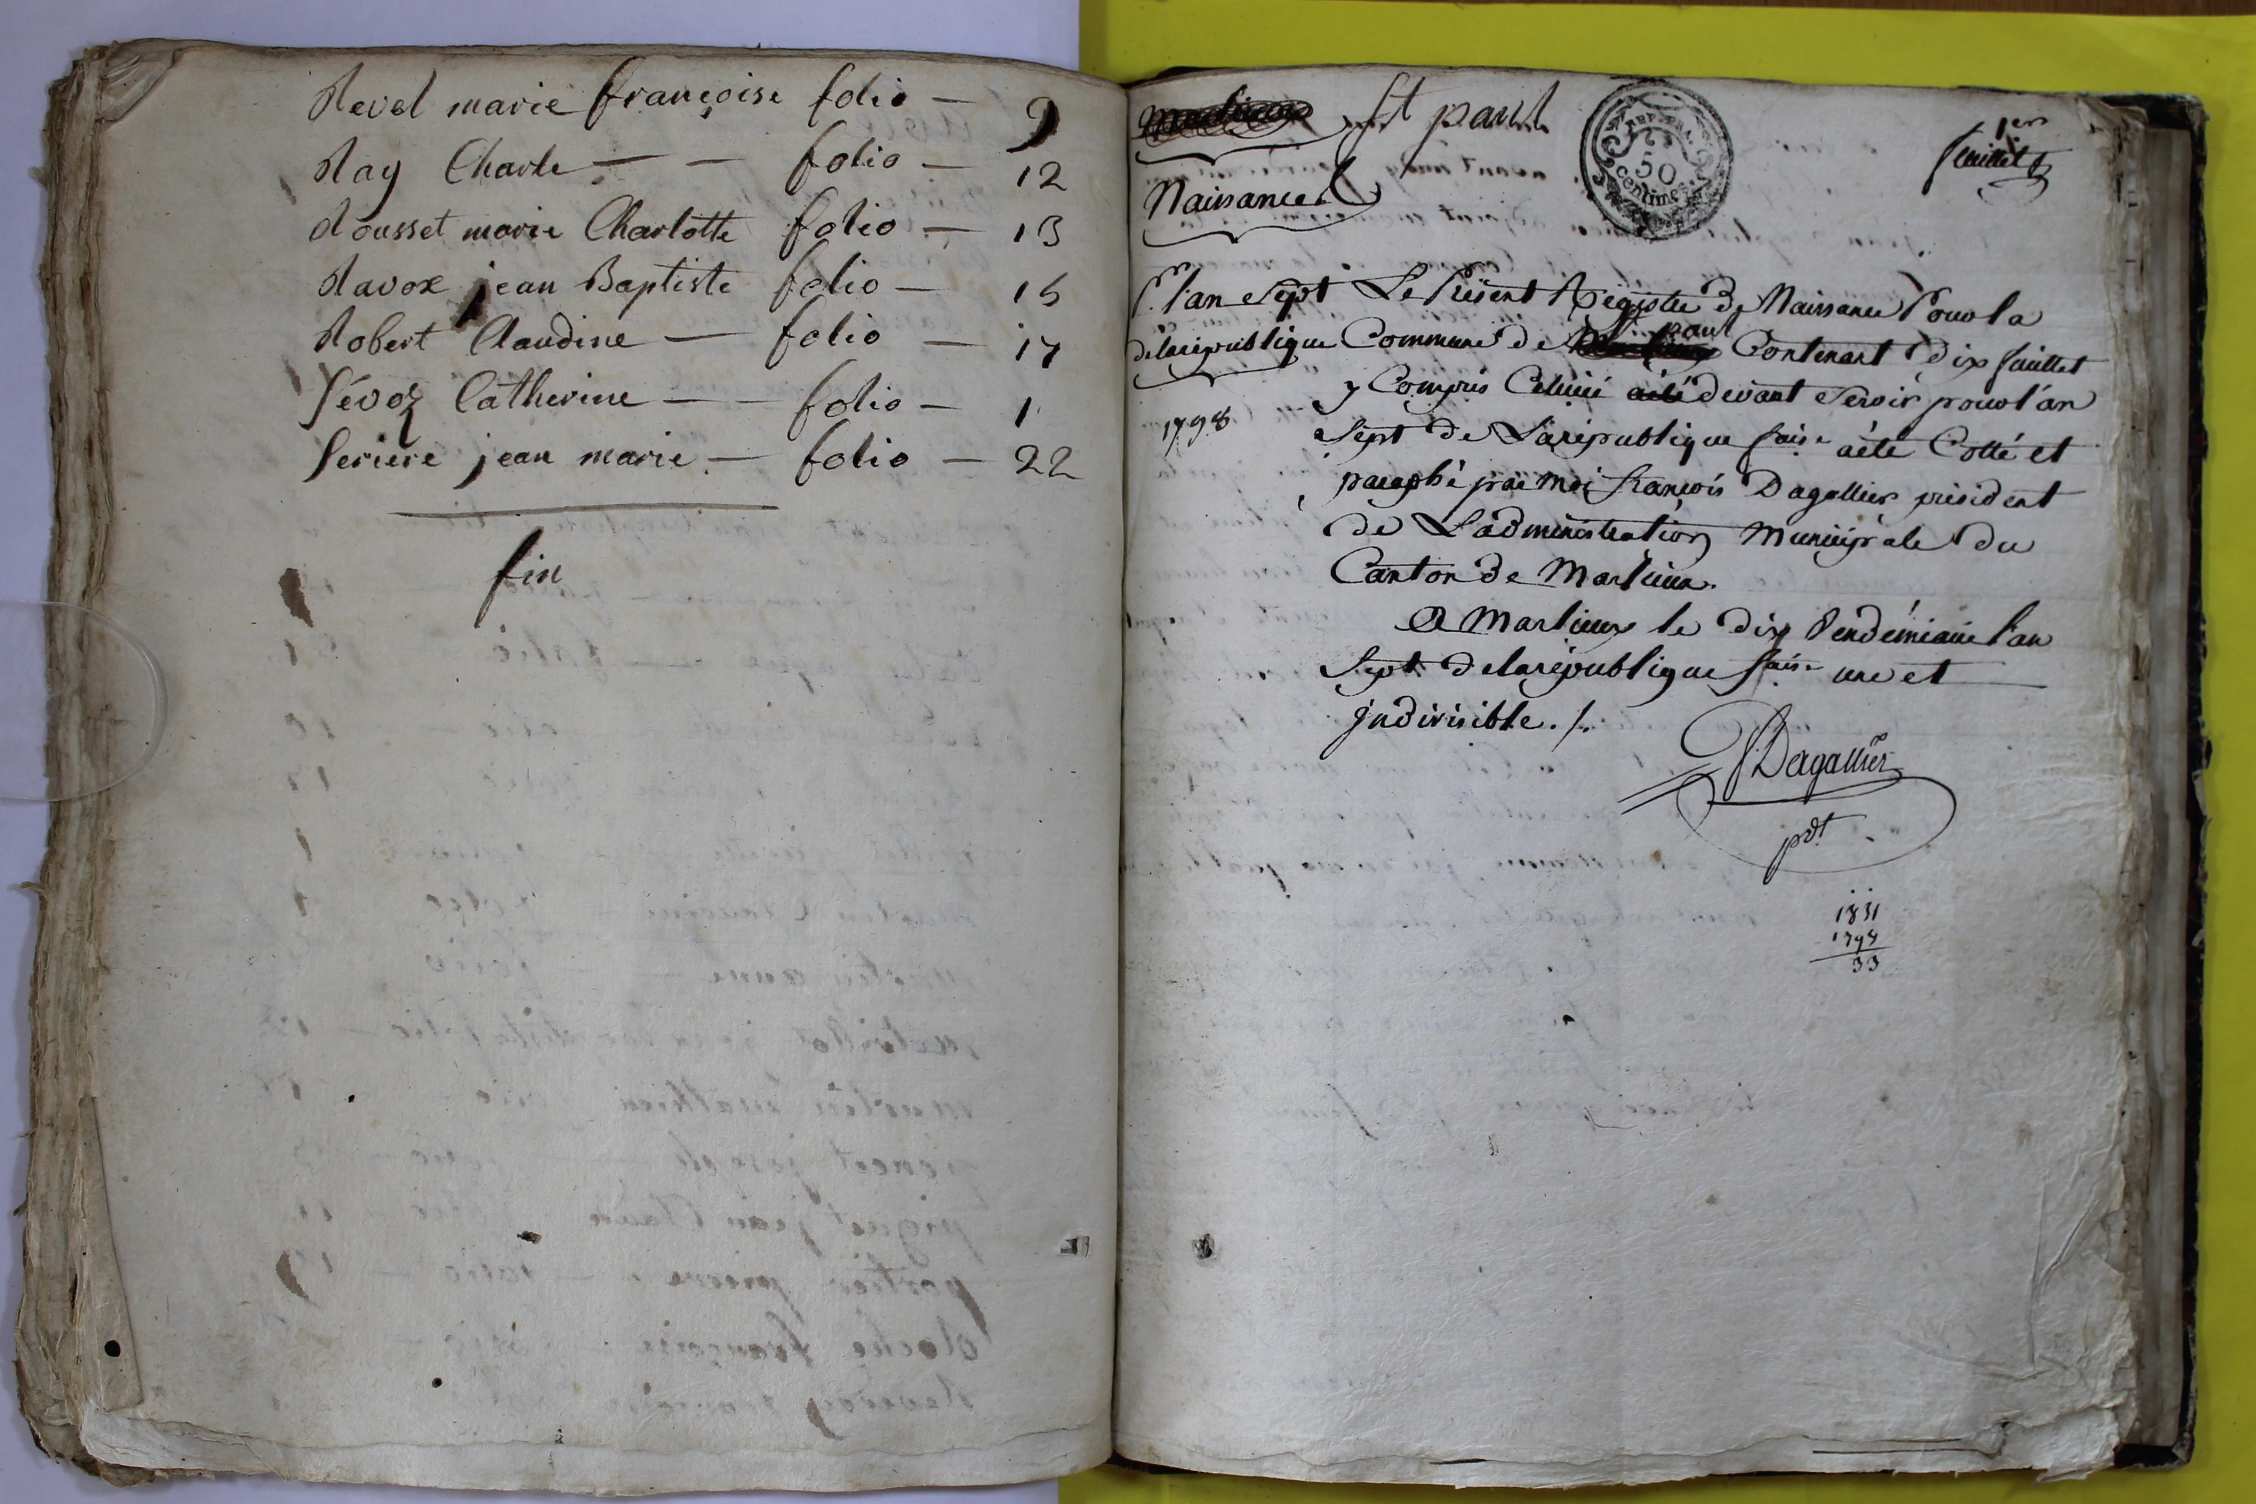 Revel marie françoise folio — 9
Ray Charle — — folio — 12
Rousset marie Charlotte folio — 13
Ravox jean Baptiste folio — 16
Robert Claudine — folio — 17
Sévoz Catherine — — folio — 1
Seriere jean marie — folio — 22
fin
St paul
Naissances
REP. FRA.
50
centimes
1er
feuillet
P. l'an Sept
de la république
1798
Le présent Régistre de Naissance Pour la
Commune de St paul Contenant dix feuillet
y Compris Celuici devant Servir pour l'an
Sept de La république faise a été Cotté et
paraphé par moi françois Dagallier président
de L'administration Municipale du
Canton de Marlieux.
A Marlieux le dix Vendémiaire l'an
Sept de la république faise une et
indivisible ./.
Dagallier
pdt
1831
1798
33